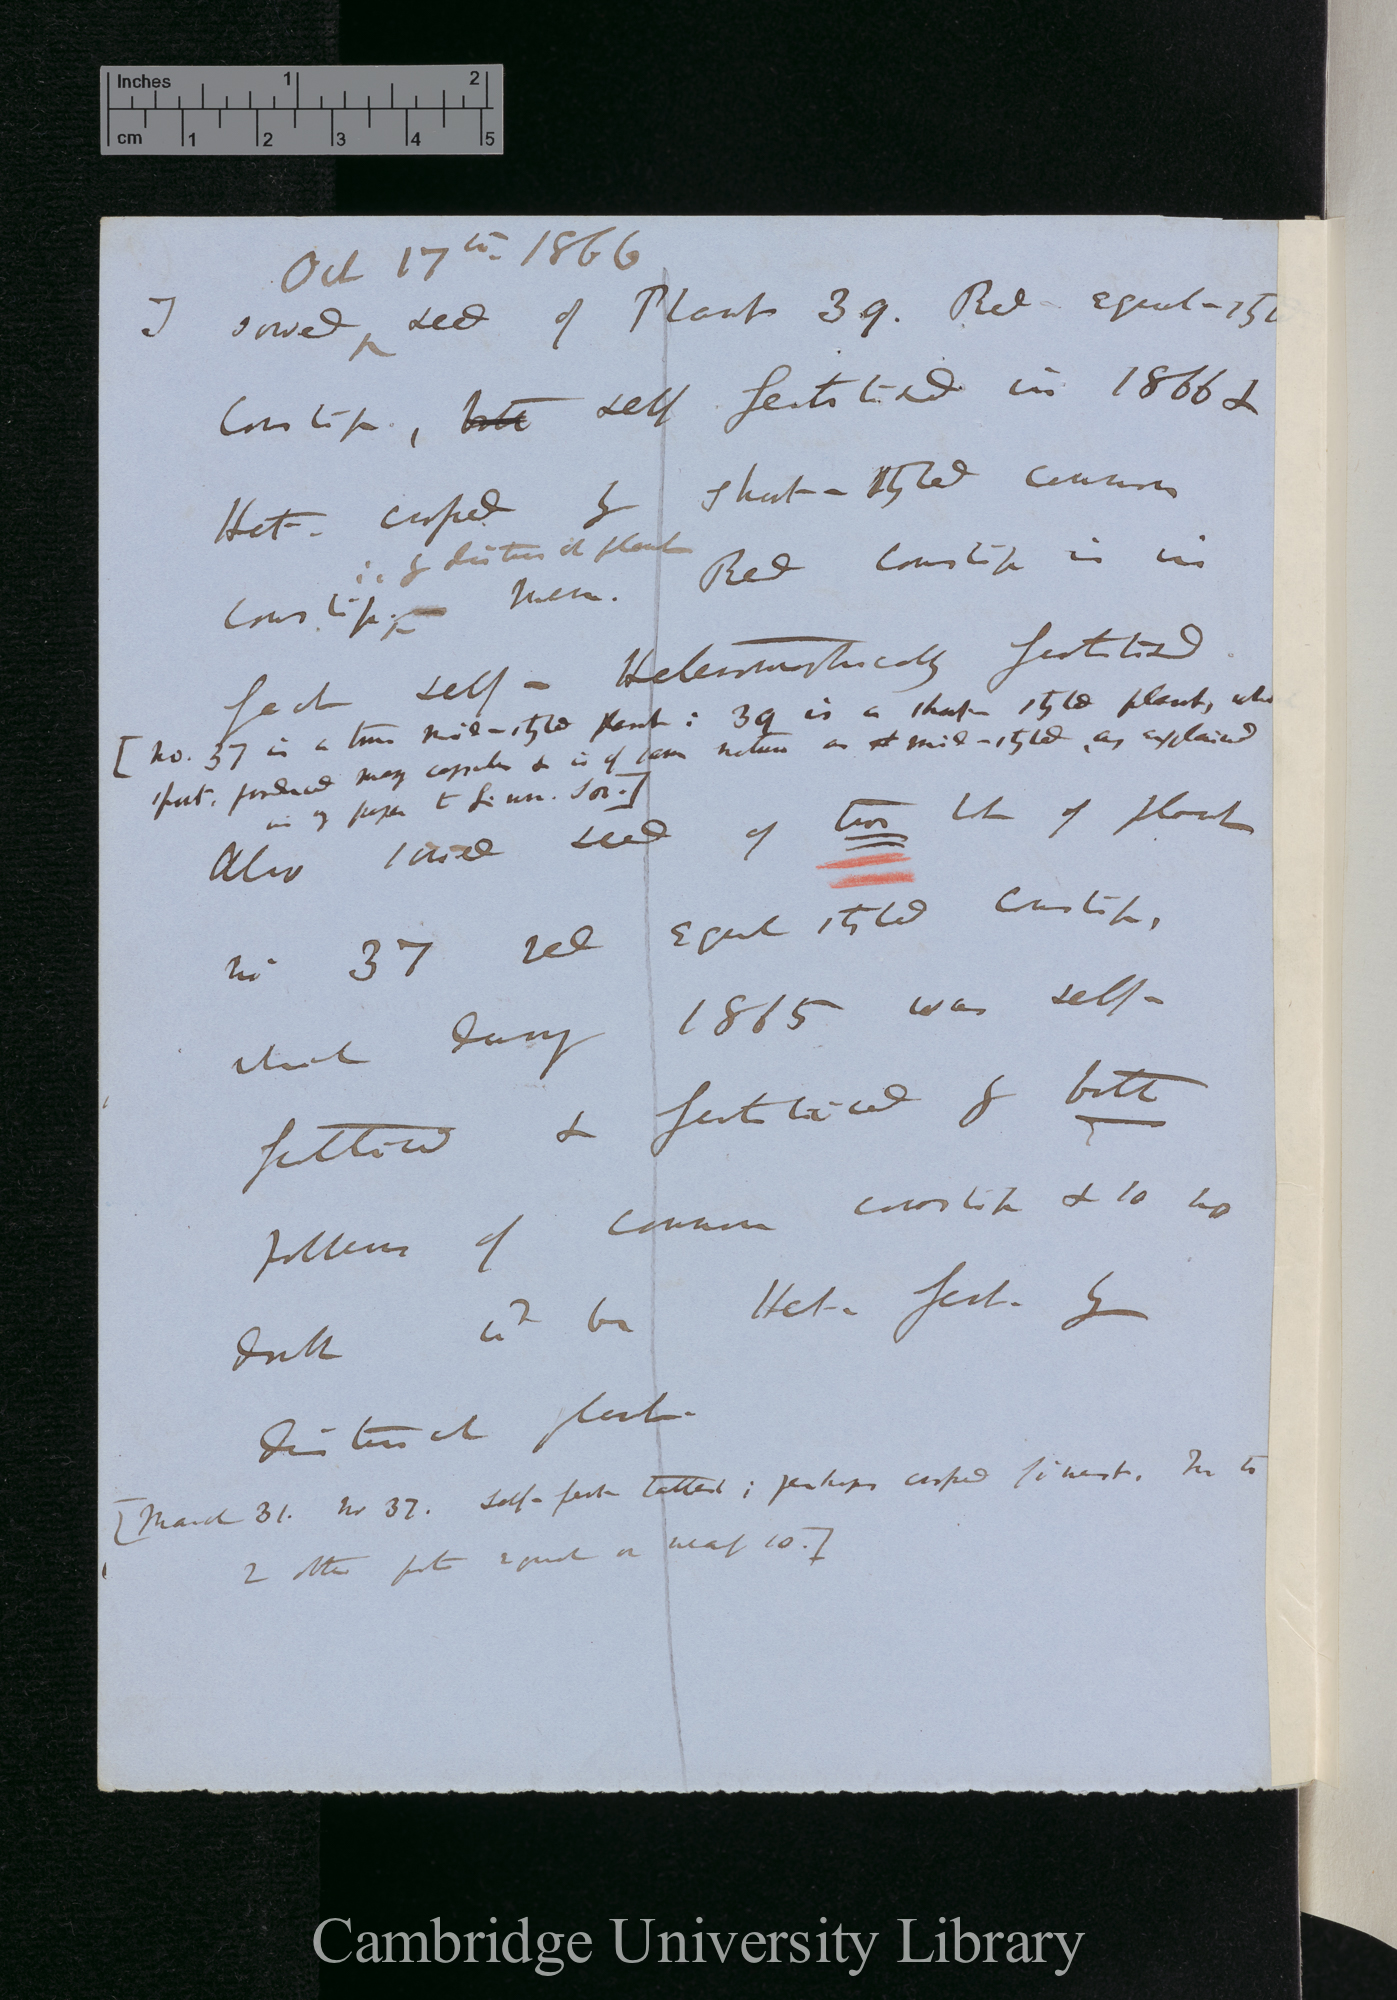 Inches 1 2
cm 1 2 3 4 5
Oct 17th. 1866
I sowed seed of Plants 39. Red equal-sty
Cowslip, both self fertilised in 1866 &
Het- crossed by short-styled common
i.e. by distinct plant
Cowslip. Mem. Red Cowslip is in
fact self- Heteromorphically fertilised.
[No. 37 is a true mid-styled plant; 39 is a short styled plant, wh
produced many capsules & is of same nature as mid-styled, as explained
in my paper to Linn. Soc.]
Also sowed seed of two lots of plant
No 37 red equal styled Cowslip,
which during 1865 was self-
fertilised & fertilised by both
pollens of common cowslip & so no
doubt wd be Het- fert. by
distinct plant.
[March 31. No 37. Self-fert tallest; perhaps crossed finest. The
2 other pots equal or nearly so.]
Cambridge University Library